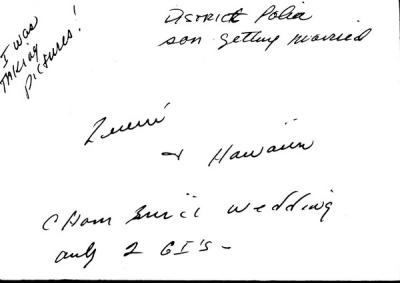 I was
TAKing
pictures!
DSTRICT Police
son getting married
& Hawaiin
CHam wedding
only 2 GI's -